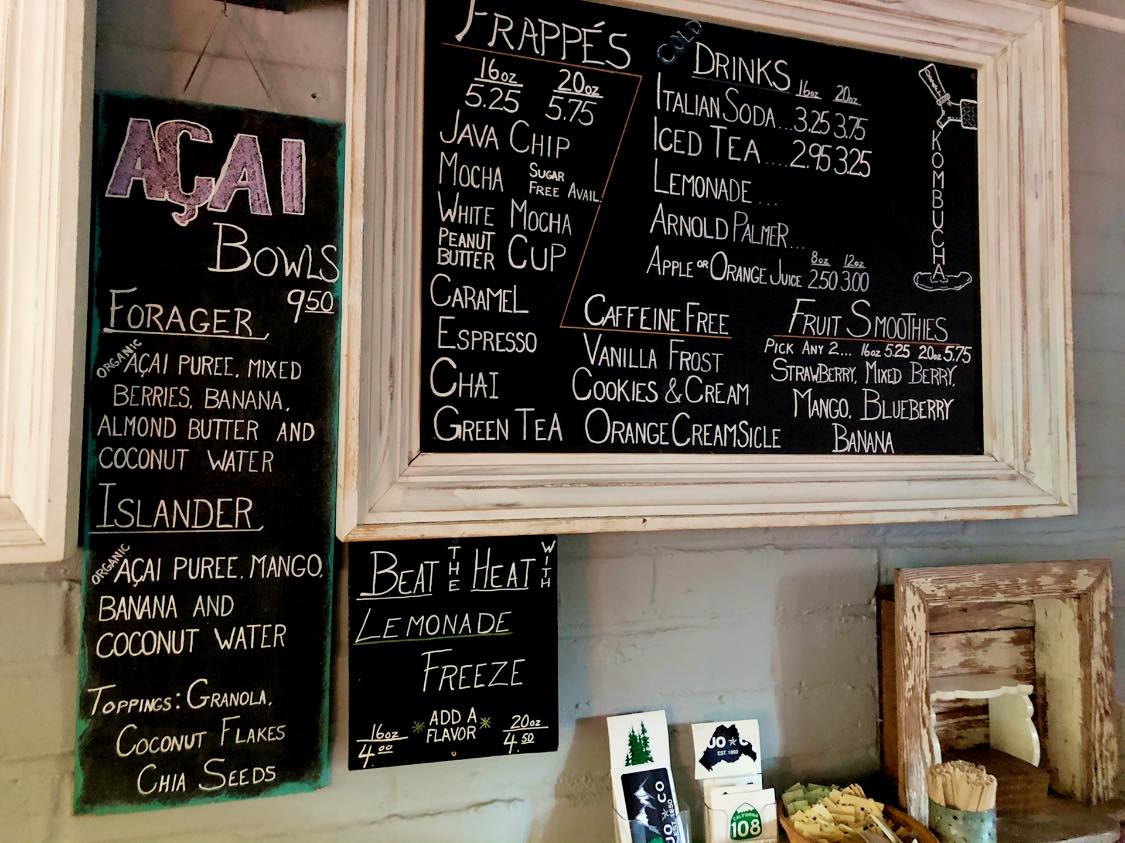 AÇAI
BOWLS
9.50
FORAGER
ORGANIC AÇAI PUREE, MIXED
BERRIES, BANANA,
ALMOND BUTTER AND
COCONUT WATER
ISLANDER
ORGANIC AÇAI PUREE, MANGO,
BANANA AND
COCONUT WATER
TOPPINGS: GRANOLA,
COCONUT FLAKES
CHIA SEEDS
FRAPPÉS
16oz 20oz
5.25 5.75
JAVA CHIP
MOCHA SUGAR FREE AVAIL.
WHITE MOCHA
PEANUT BUTTER CUP
CARAMEL
ESPRESSO
CHAI
GREEN TEA
COLD DRINKS 16oz 20oz
ITALIAN SODA...3.25 3.75
ICED TEA....2.95 3.25
LEMONADE ...
ARNOLD PALMER...
8oz 12oz
APPLE OR ORANGE JUICE 2.50 3.00
KOMBUCHA
CAFFEINE FREE
VANILLA FROST
COOKIES & CREAM
ORANGE CREAMSICLE
FRUIT SMOOTHIES
PICK ANY 2... 16oz 5.25 20oz 5.75
STRAWBERRY, MIXED BERRY,
MANGO, BLUEBERRY
BANANA
BEAT THE HEAT WITH
LEMONADE
FREEZE
16oz 4.00 *ADD A FLAVOR* 20oz 4.50
UO CO
EST. 1850
JO C
EST. 1850
CALIFORNIA
108